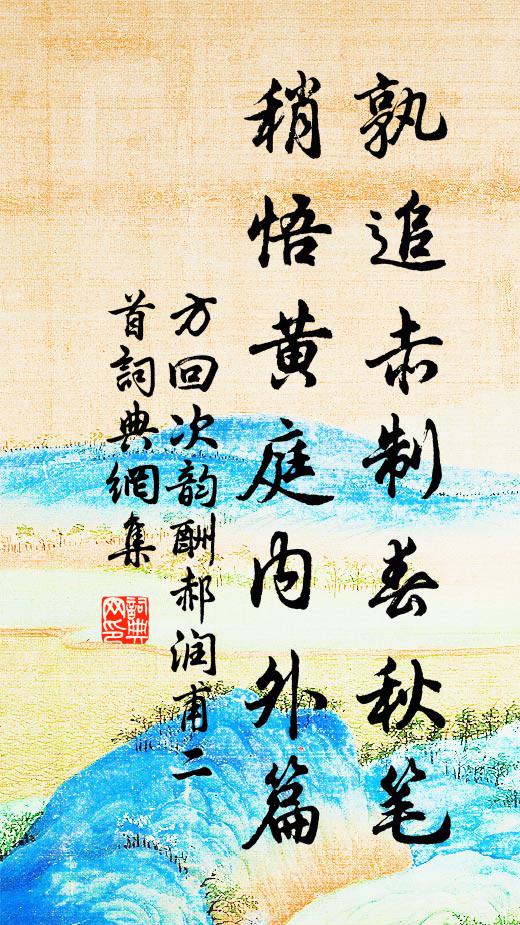 孰追赤制春秋笔
稍悟黄庭内外篇
方回次韵酬郝润甫二
首詞典網集
詞典
网印